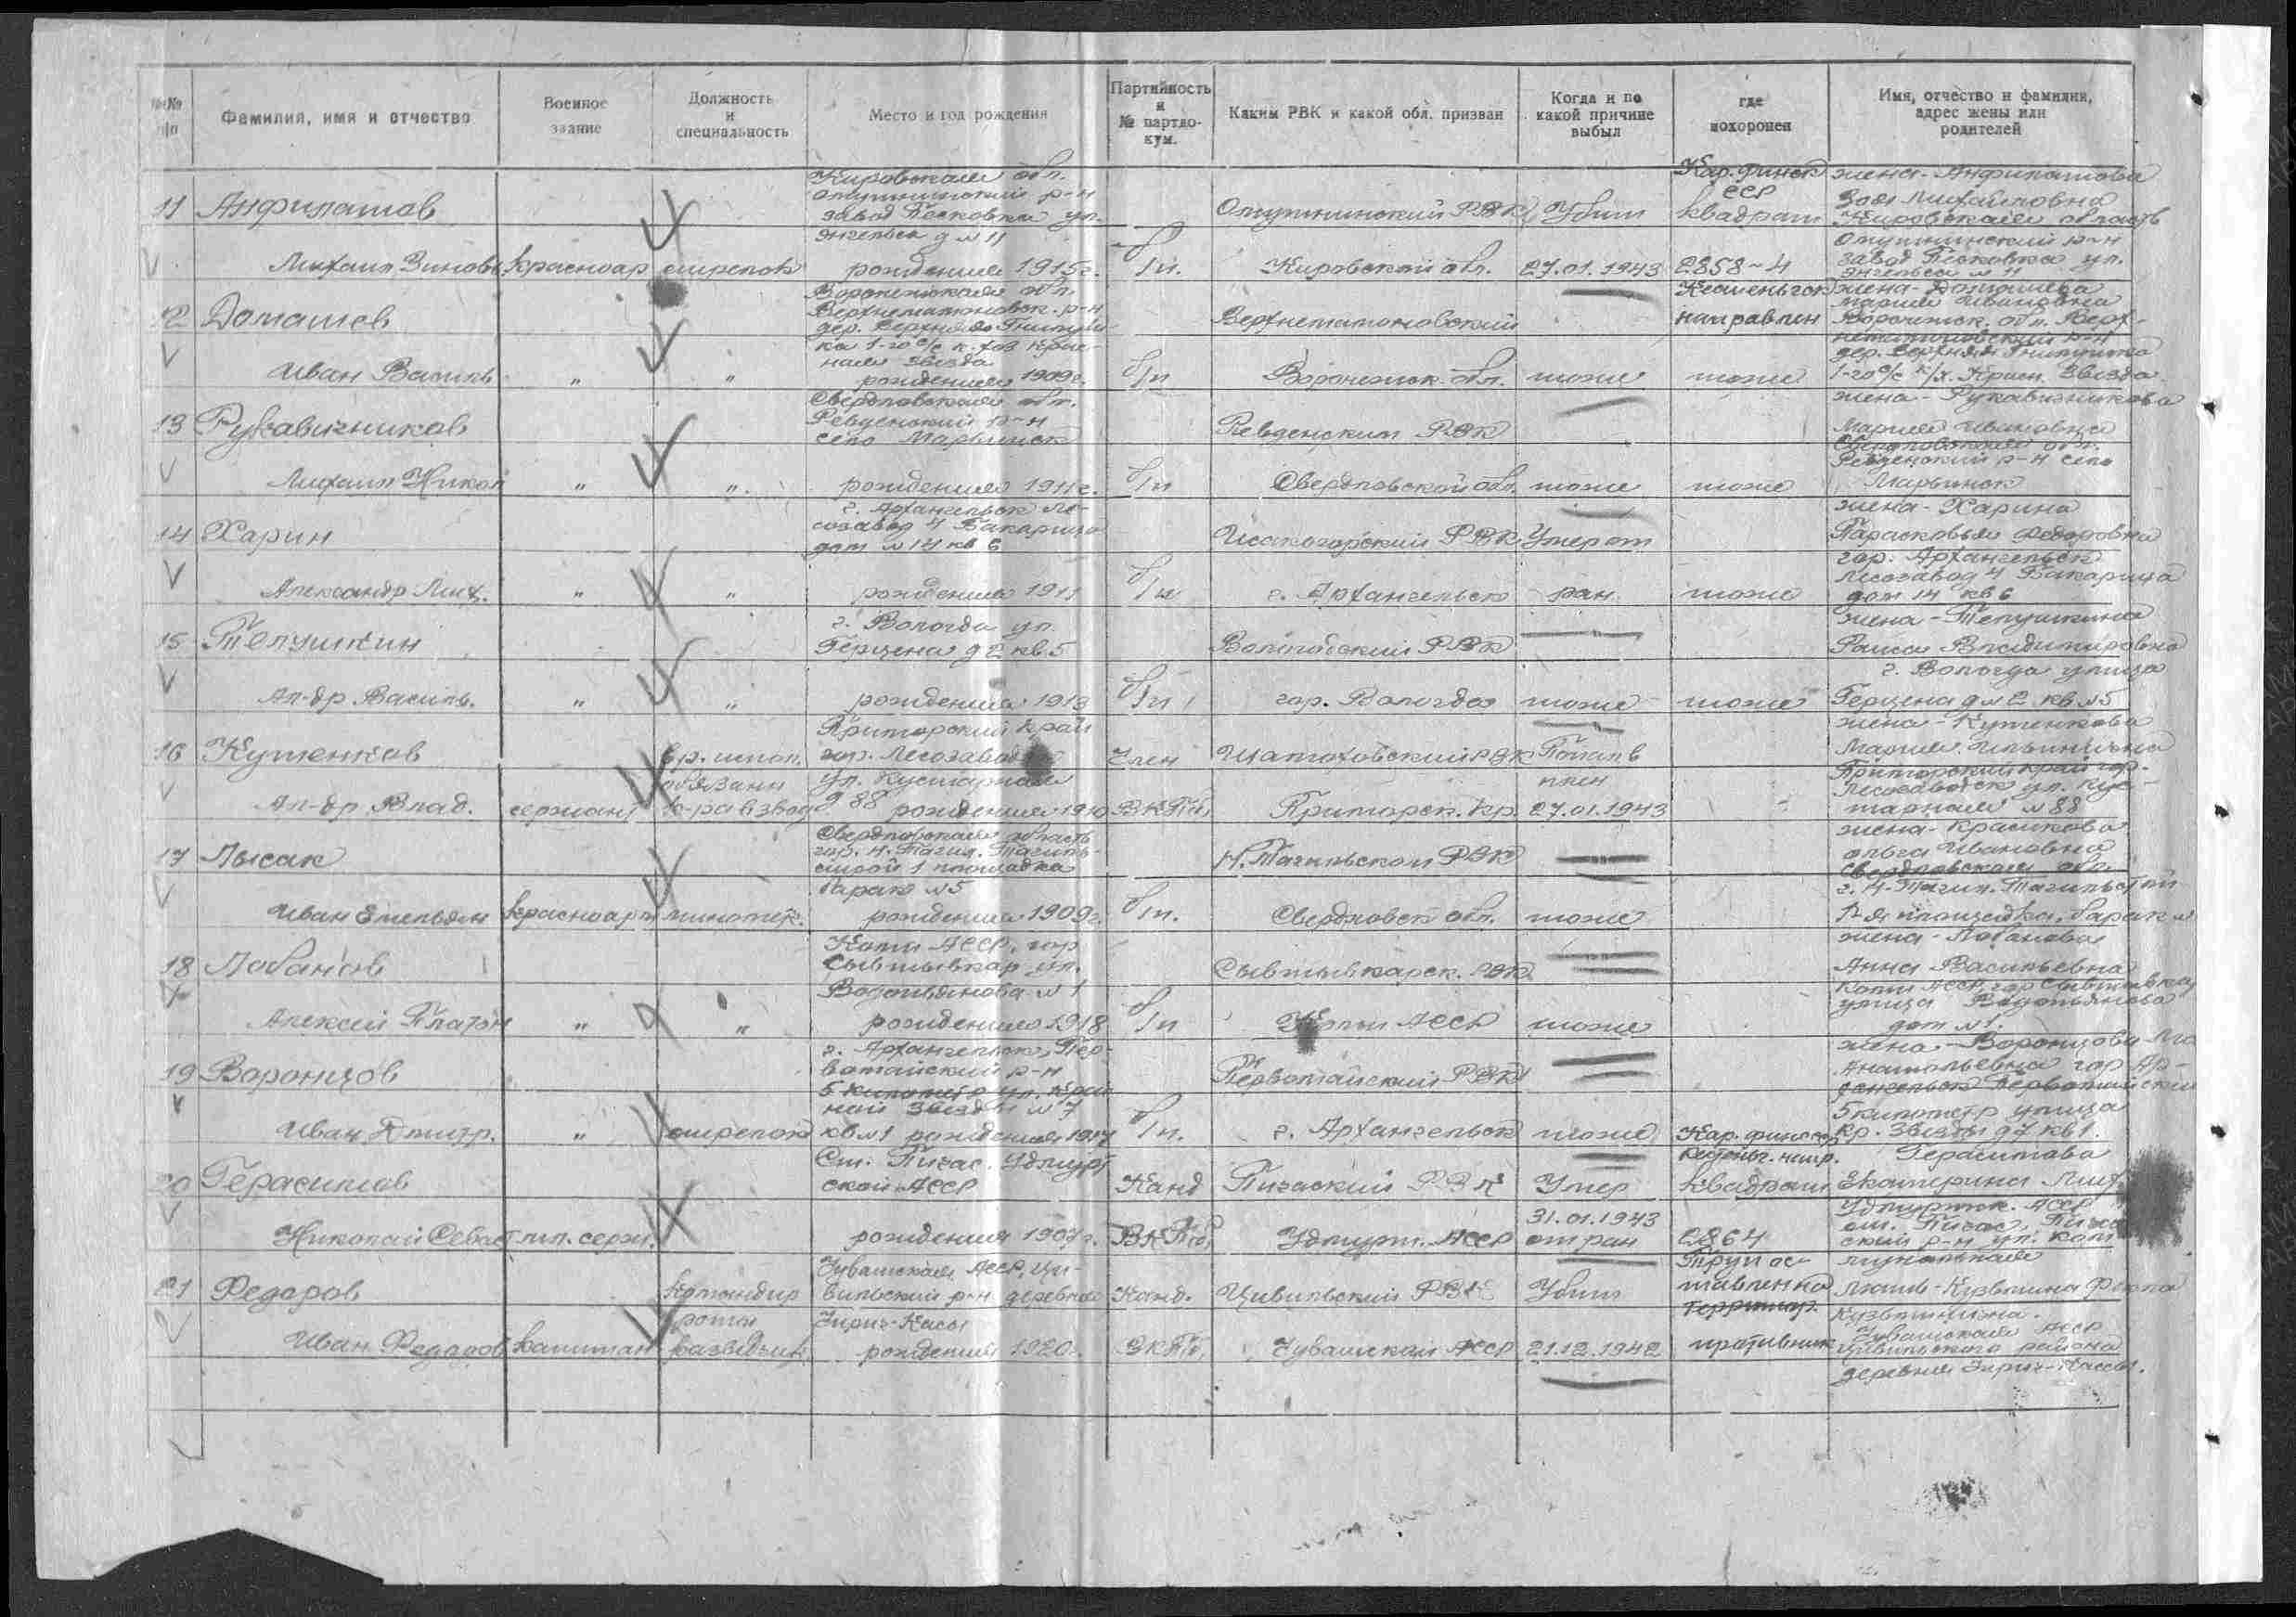 №№ п/п
Фамилия, имя и отчество
Военное звание
Должность и специальность
Место и год рождения
Партийность и № партдокум.
Каким РВК и какой обл. призван
Когда и по какой причине выбыл
где похоронен
Имя, отчество и фамилия, адрес жены или родителей
11 Анфилатов
Михаил Зиновь.
красноар
стрелок
Кировская обл.
Омутнинский р-н
завод Песковка ул.
Энгельса д № 11
рождения 1915 г.
б/п.
Омутнинский РВК
Кировской обл.
Убит
27.01.1943
Кар. финск
ССР
квадрат
2858-4
Кестеньгск
направлен
жена - Анфилатова
Зоя Михайловна
Кировская область
Омутнинский р-н
завод Песковка ул.
Энгельса № 11
12 Домашев
Иван Василь
"
"
Воронежская обл.
Верхнемамоновск. р-н
рождения 1909 г.
б/п
Верхнемамоновский
Воронежск. обл.
тоже
тоже
жена - Домашева
Мария Ивановна
Воронежск. обл. Верх-
1-го с/с к/х. Красн. Звезда
13 Рукавишников
Михаил Никол
"
"
Свердловская обл.
Ревденский р-н
село Марьинск
рождения 1911 г.
б/п
Ревденским РВК
Свердловской обл.
тоже
тоже
жена - Рукавишникова
Мария Ивановна
Свердловская обл.
Ревденский р-н село
Марьинск
14 Харин
Александр Мих.
"
"
г. Архангельск ле-
созавод 4 Бакарица
дом № 14 кв 6
рождения 1911
б/п
Исакогорский РВК
г. Архангельск
Умер от
ран
тоже
жена - Харина
Парасковья Федоровна
гор. Архангельск
Лесозавод 4 Бакарица
дом 14 кв 6
15 Тепушкин
Ал-др Василь.
"
"
г. Вологда ул.
Герцена д 2 кв 5
рождения 1913
б/п
РВК
гор. Вологда
тоже
тоже
жена - Тепушкина
Раиса Владимировна
г. Вологда улица
Герцена д № 2 кв № 5
16 Кутенков
Ал-др Влад.
сержант
вр. испол.
обязанн
к-ра взвод
Приморский край
гор. Лесозавод
ул. Кустарная
д 88 рождения 1910
Член
ВКП(б)
РВК
Приморск. кр.
Попал в
плен
27.01.1943
жена - Кутенкова
Мария Ильинична
Приморский край гор.
Лесозаводск ул. Кус-
тарная № 88
17 Лысак
Иван Емельян
красноарм
минометч.
Свердловская область
гор. Н. Тагил. Тагил-
строй 1 площадка
барак № 5
рождения 1909 г.
б/п.
Н. Тагильском РВК
Свердловск обл.
тоже
жена - Красикова
Ольга Ивановна
Свердловская обл.
18 Лобанов
Алексей Платон
"
"
Коми АССР, гор
Сывтывкар ул.
Водопьянова № 1
рождения 1918
б/п
Сывтывкарск. РВК
Коми АССР
тоже
жена - Лобанова
Анна Васильевна
улица Водопьянова
дом № 1.
19 Воронцов
Иван Дмитр.
"
стрелок
г. Архангельск, Пер-
вомайский р-н
5 километр ул. Крас
ной Звезды № 7
кв № 1 рождения 1917
б/п.
Первомайский РВК
г. Архангельск
тоже
жена - Воронцова
Анатольевна гор Ар-
хангельск Первомайский
5 километр улица
Кр. Звезды д 7 кв 1.
20 Герасимов
Николай Севаст
мл. серж.
Ст. Пичас. Удмурт
ской АССР
рождения 1907 г.
Канд
ВКП(б)
Пичаский РВК
Удмурт. АССР
Умер
31.01.1943
от ран
Кар. финсср
Кестеньг. напр.
квадрат
2864
Герасимова
Екатерина Мих.
Удмуртск. АССР
ст. Пичас, Пича
ский р-н ул. Ком
мунальная
21 Федоров
Иван Федоров
капитан
командир
роты
разведчик
Чувашская АССР, Ци-
вильский р-н деревня
рождения 1920 г.
Канд.
ВКП(б)
Цивильский РВК
Чувашская АССР
Убит
21.12.1942
Труп ос-
тавлен на
территор.
противник
мать - Кузьмина Фекла
Кузьминична.
Чувашская АССР
Цивильского района
деревня